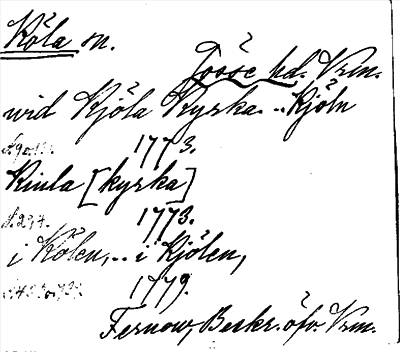 Köla m.
Jösse hd. Vrm.
wid Kjöla Kyrka. .. Kjöln
1773.
Kiula [kyrka]
1773.
i Kölen, .. i Kjölen,
1779.
Fernow, Beskr. öfv. Vrm.